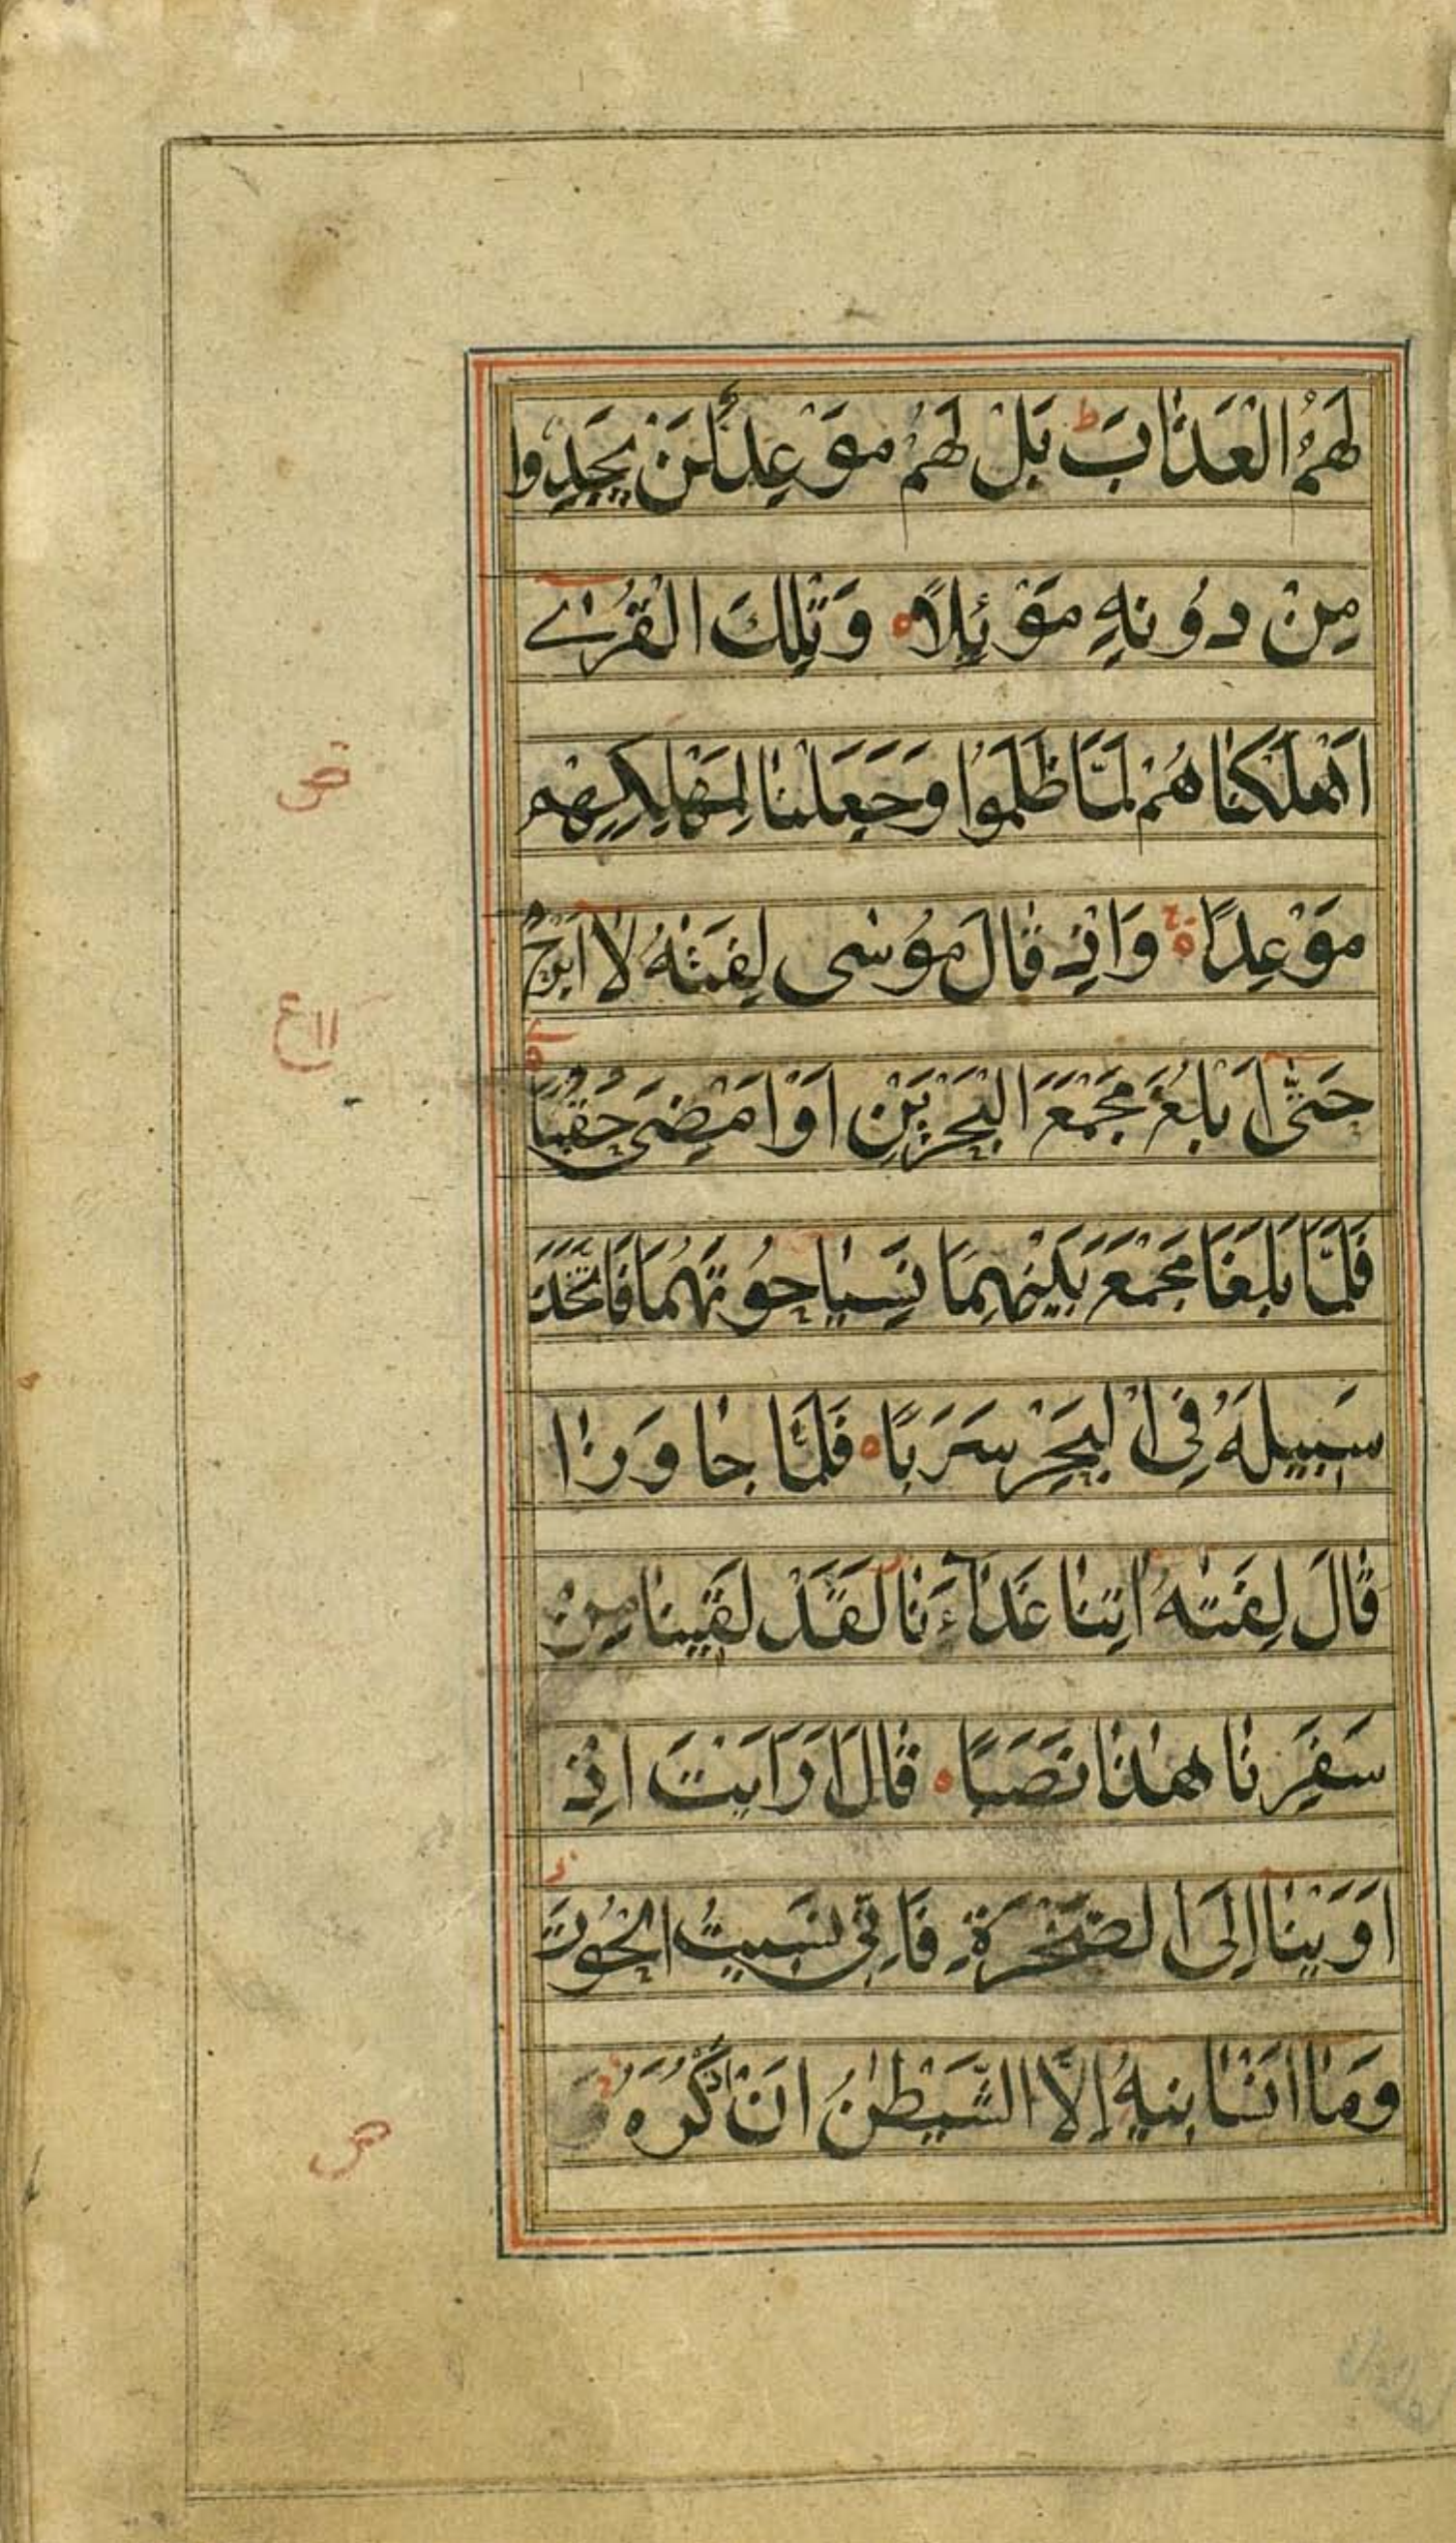 لَهُمُ الْعَذَابَ ط بَلْ لَهُمْ مَوْعِدٌ لَنْ يَجِدُوا
مِنْ دُونِهِ مَوْئِلًا ه وَتِلْكَ الْقُرٰے
اَهْلَكْنَاهُمْ لَمَّا ظَلَمُوا وَجَعَلْنَا لِمَهْلِكِهِمْ
ص
مَوْعِدًا ه وَاِذْ قَالَ مُوسٰى لِفَتٰهُ لَا اَبْرَحُ
١١ع
حَتّٰى اَبْلُغَ مَجْمَعَ الْبَحْرَيْنِ اَوْ اَمْضِيَ حُقُبًا ه
فَلَمَّا بَلَغَا مَجْمَعَ بَيْنِهِمَا نَسِيَا حُوتَهُمَا فَاتَّخَذَ
سَبِيلَهُ فِي الْبَحْرِ سَرَبًا ه فَلَمَّا جَاوَزَا
قَالَ لِفَتٰهُ اٰتِنَا غَدَاءَنَا لَقَدْ لَقِينَا مِنْ
سَفَرِنَا هٰذَا نَصَبًا ه قَالَ اَرَاَيْتَ اِذْ
اَوَيْنَا اِلَى الصَّخْرَةِ فَاِنِّي نَسِيتُ الْحُوتَ ز
وَمَا اَنْسَانِيهُ اِلَّا الشَّيْطٰنُ اَنْ اَذْكُرَهُ
ص